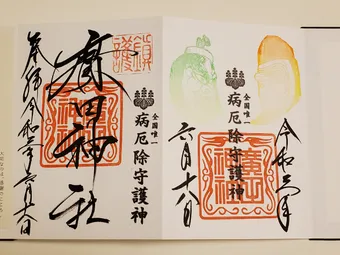 令和三年
全国唯一
病厄除守護神
六月十八日
全国唯一
病厄除守護神
廣田神社
奉拝 令和三年六月十八日